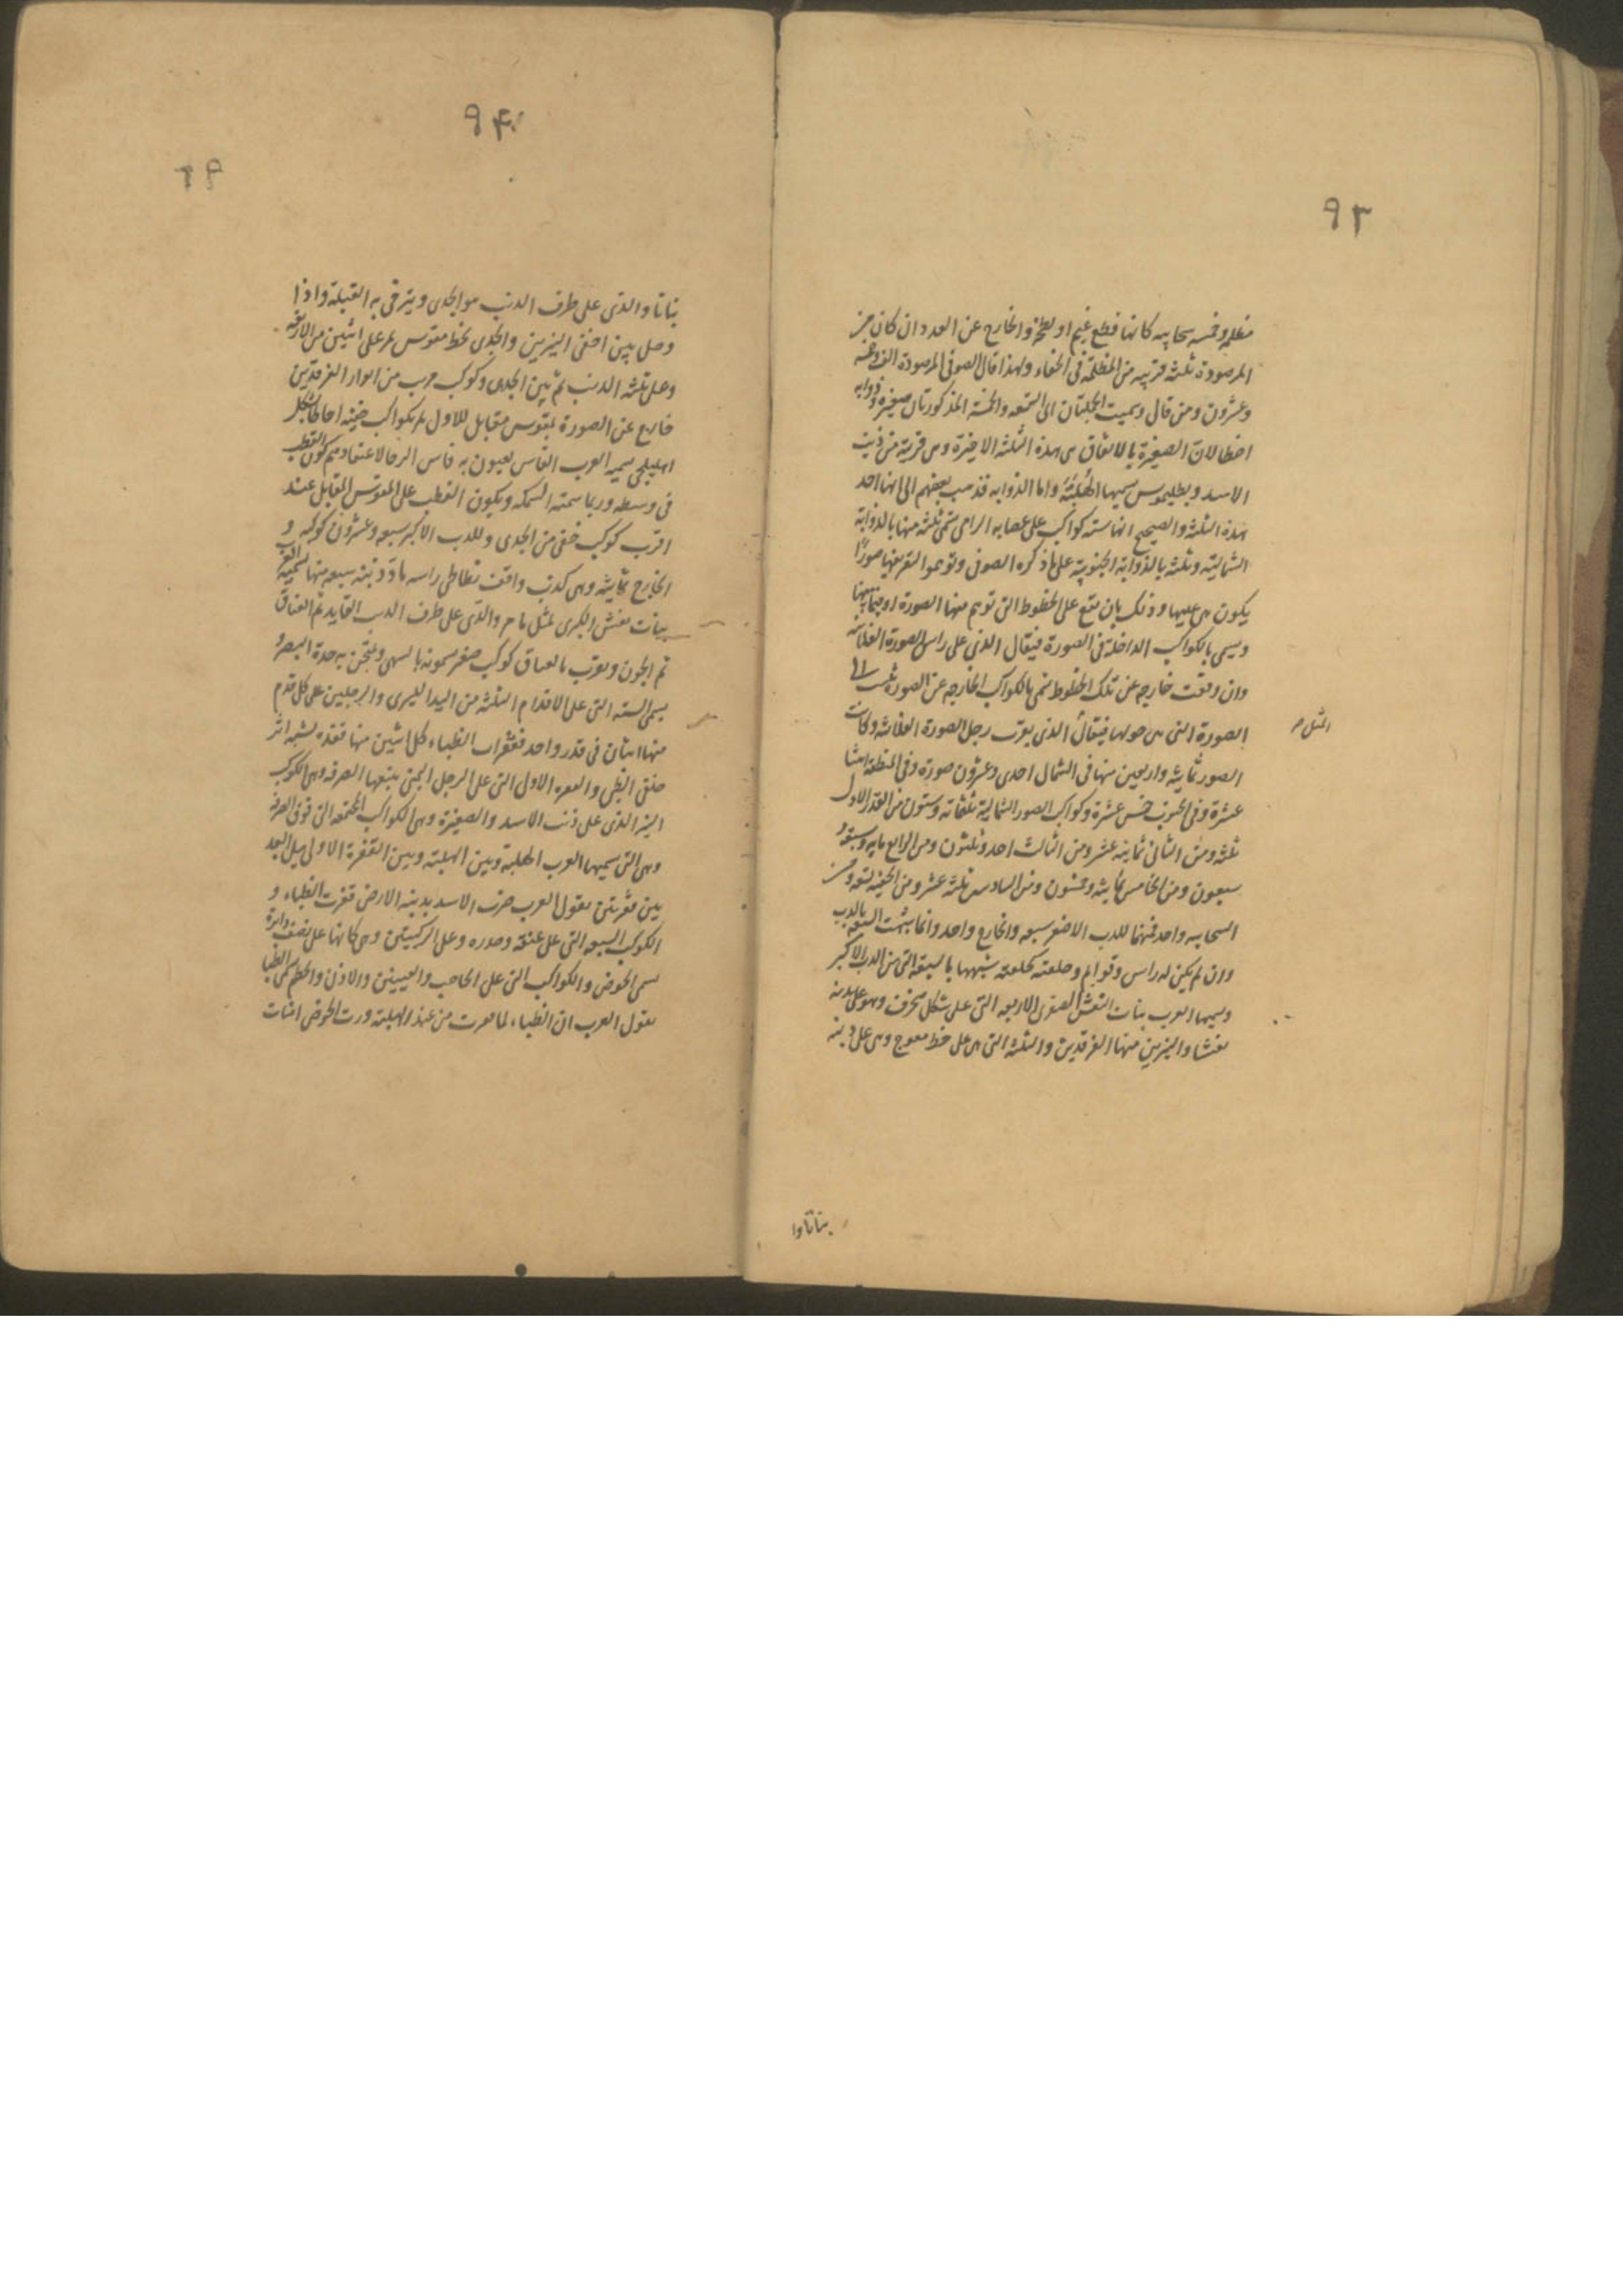 ٩٣
مظلمه وخمسه سحابيه كانها قطع غيم او لطخ والخارج عن العدد ان كان من
المرصودة ثلثه قريبه من المظلمة فى الخفاء ولهذا قال الصوفى المرصودة الف وخمسه
وعشرون ومن قال وسميت الجلتان الى المتمعه والخمسة المذكورتان صغيرة وذوابه
اخطا لان الصغيرة بالاتفاق هى هذه الثلثه الاخيرة وهى قريبة من ذنب
الاسد وبطليموس يسميها الهُلبَة واما الذوابه فذهب بعضهم الى انها احد
هذه الثلثه والصحيح انها سته كواكب على عصابه الرامى تسمى ثلثه منها بالذوابة
الشمالية وثلثه بالذوابة الجنوبية على ما ذكره الصوفى وتوهموا لتعريفها صورًا
يكون هى عليها وذلك بان تقع على الخطوط التى توهم منها الصورة او فيما بينها
ويسمى بالكواكب الداخلة فى الصورة فيقال الذى على راس الصورة الفلانيه
وان وقعت خارجه عن تلك الخطوط تسمى بالكواكب الخارجه عن الصورة
الصورة التى هى حولها فيقال الذى بقرب رجل الصورة الفلانيه وكانت
المثل م
الصور ثمانيه واربعين منها فى الشمال احدى وعشرون صورة وفى المنطقه اثنتا
عشرة وفى الجنوب خمس عشرة وكواكب الصور الشمالية ثلثمائه وستون من القدر الاول
ثلثه ومن الثانى ثمانيه عشر ومن الثالث احد وثمثون ومن الرابع مايه وسبعه و
سبعون ومن الخامس ثمانيه وخمسون ومن السادس ثلثه عشر ومن الخفيه تسعه ومن
السحابيه واحد فمنها للدب الاصغر سبعه والخارج واحد وانما شبهت السبعه بالدب
وان لم يكن له راس وقوايم وخلقته كخلقته شبهها بالسبعة التى من الدب الاكبر
ويسميها العرب بنات النعش الصغرى الاربعه التى على شكل منحرف وهو على بدنه
نعشا والنيرين منها الفرقدين والثلثه التى هى على خط معوج وهى على ذنبه
بناتا وا
٩٤
بناتا والذى على طرف الذنب هو الجدى ويتوخى به القبلة واذا
وصل بين اخفى النيرين والجدى بخط مقوس يمر على اثنين من الاربعه
وصل ثلثه الذنب ثم بين الجدى وكوكب قرب من انوار الفرقدين
خارج عن الصورة بقوس مقابل للاول يمر بكواكب خفيه احاطا بشكل
اهليلجى يسميه العرب الفاس يعنون به فاس الرحا لاعتقادهم كون القطب
فى وسطه وربما سمته السمكه ويكون القطب على المقوس المقابل عند
اقرب كوكب خفى من الجدى وللدب الاكبر سبعه وعشرون كوكبه و
الخارج ثمانيه وهى كدب واقف تطاطى راسه ماد ذنبه سبعه منها تسميه العرب
بنات نعش الكبرى لمثل ما مر والذى على طرف الذنب القايد ثم العناق
ثم الجون وبقرب العناق كوكب صغير يسمونه بالسهى ويمتحن به حدة البصر و
يسمى السته التى على الاقدام الثلثه من اليد اليسرى والرجلين على كل قدم
منها اثنان فى قدر واحد قفزات الظباء كل اثنين منها قفزه يشبه اثر
ظلفى الظبى والقفزه الاولى التى على الرجل اليمنى يتبعها الصرفه وهى الكوكب
النير الذى على ذنب الاسد والصغيرة وهى الكواكب المجتمعه التى فوق الصرفة
وهى التى يسميها العرب الهلبة وبين الهلبة وبين القفزة الاولى مثل البعد
بين قفزتين يقول العرب ضرب الاسد بذنبه الارض فقفزت الظباء و
الكواكب السبعه التى على عنقه وصدره وعلى الركبتين وهى كانها على نصف دائرة
يسمى الحوض والكواكب التى على الحاجب والعينين والاذن والخطم تسمى الظبا
يقول العرب ان الظباء لما هربت من عند الهلبه وردت الحوض